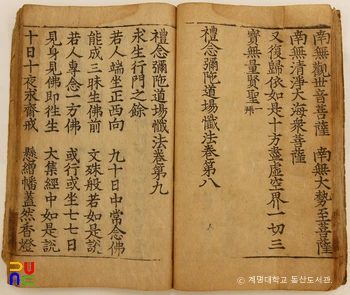 南無觀世音菩薩　南無大勢至菩薩
南無清淨大海衆菩薩
又復歸依如是十方盡虛空界一切三
寶無量賢聖一拜
禮念彌陁道場懺法卷第八
禮念彌陁道場懺法卷第九
求生行門之餘
若人端坐正西向　九十日中常念佛
能成三昧生佛前　文殊般若如是說
若人專念一方佛　或行或坐七七日
見身見佛即徃生　大集經中如是說
十日十夜求齊戒　懸繒幡蓋然香燈
계명대학교 동산도서관